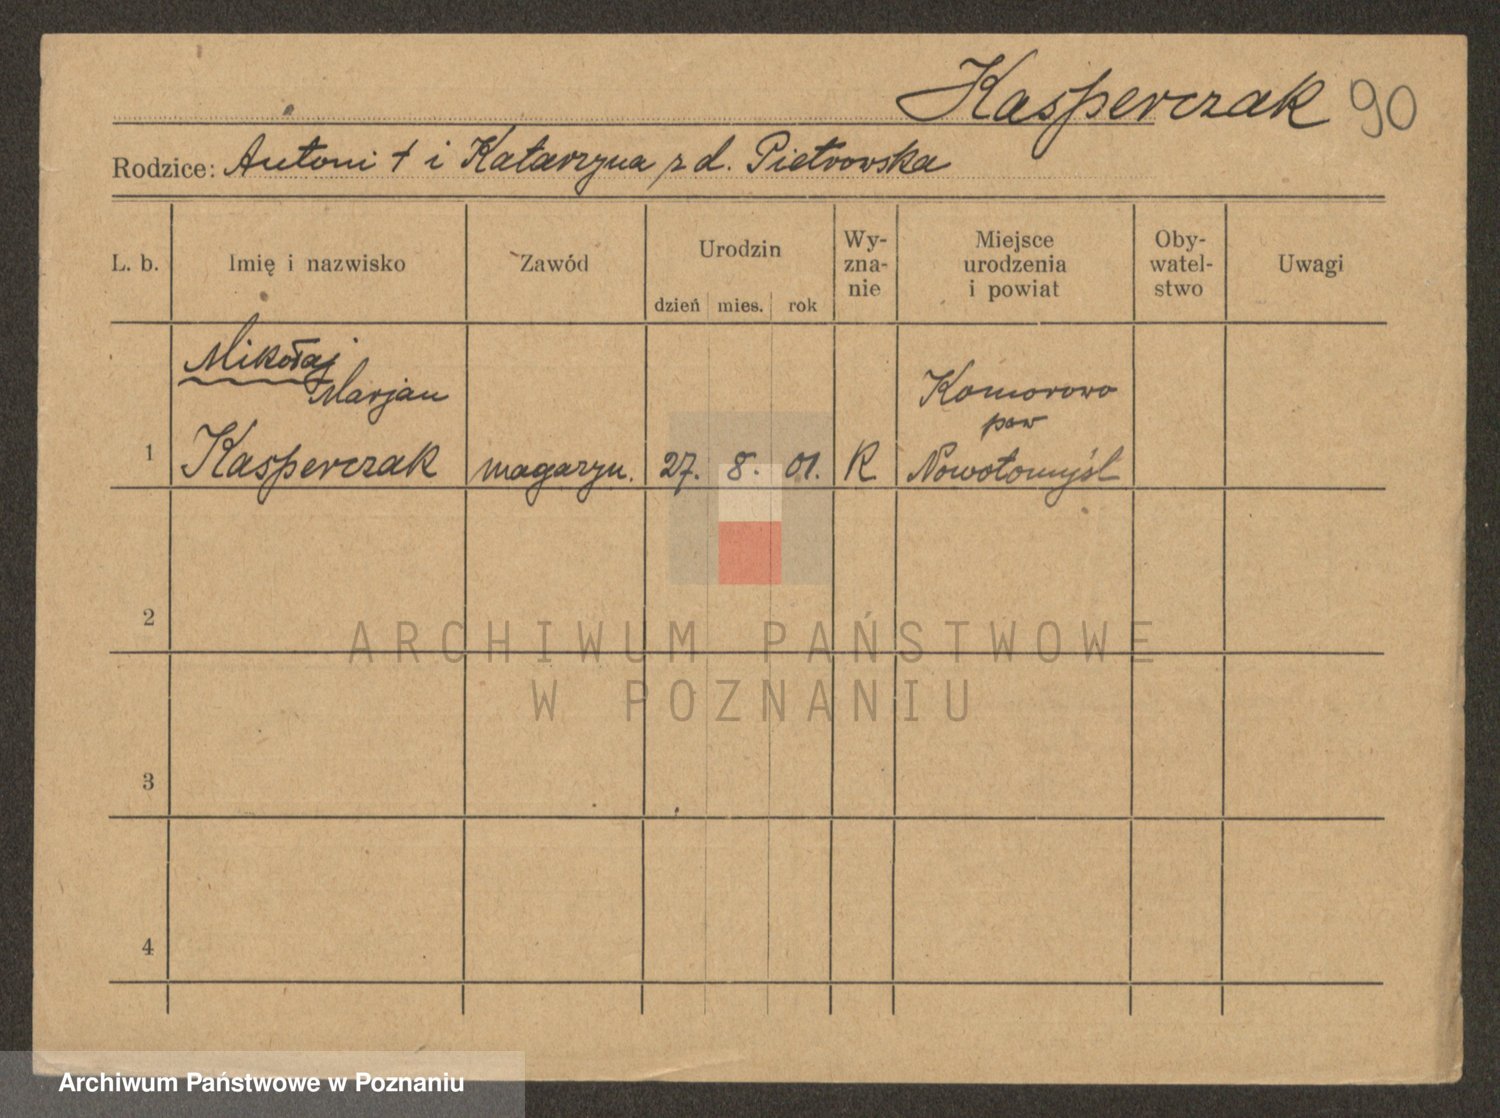 Kasperczak 90
Rodzice: Antoni † i Katarzyna z d. Pietrowska
L. b.
Imię i nazwisko
Zawód
Urodzin
dzień mies. rok
Wy-
zna-
nie
Miejsce
urodzenia
i powiat
Oby-
watel-
stwo
Uwagi
Mikołaj
Marjan
1 Kasperczak magazyn. 27. 8. 01. R
Komorowo
pow
Nowotomyśl
2
3
4
ARCHIWUM PAŃSTWOWE
W POZNANIU
Archiwum Państwowe w Poznaniu